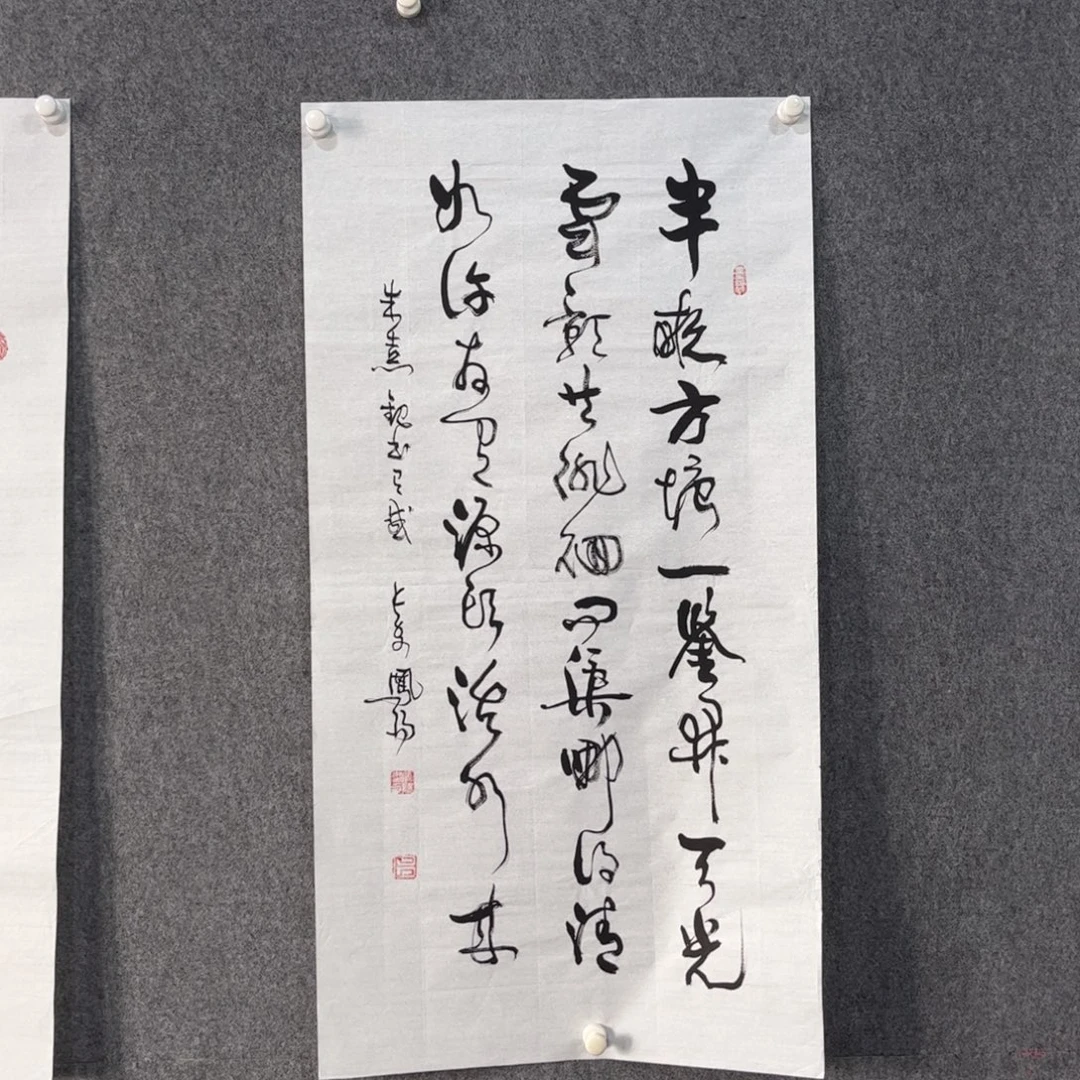 半畝方塘一鑒開天光
雲影共徘徊問渠那得清
如許為有源頭活水來
朱熹觀書有感 鳳